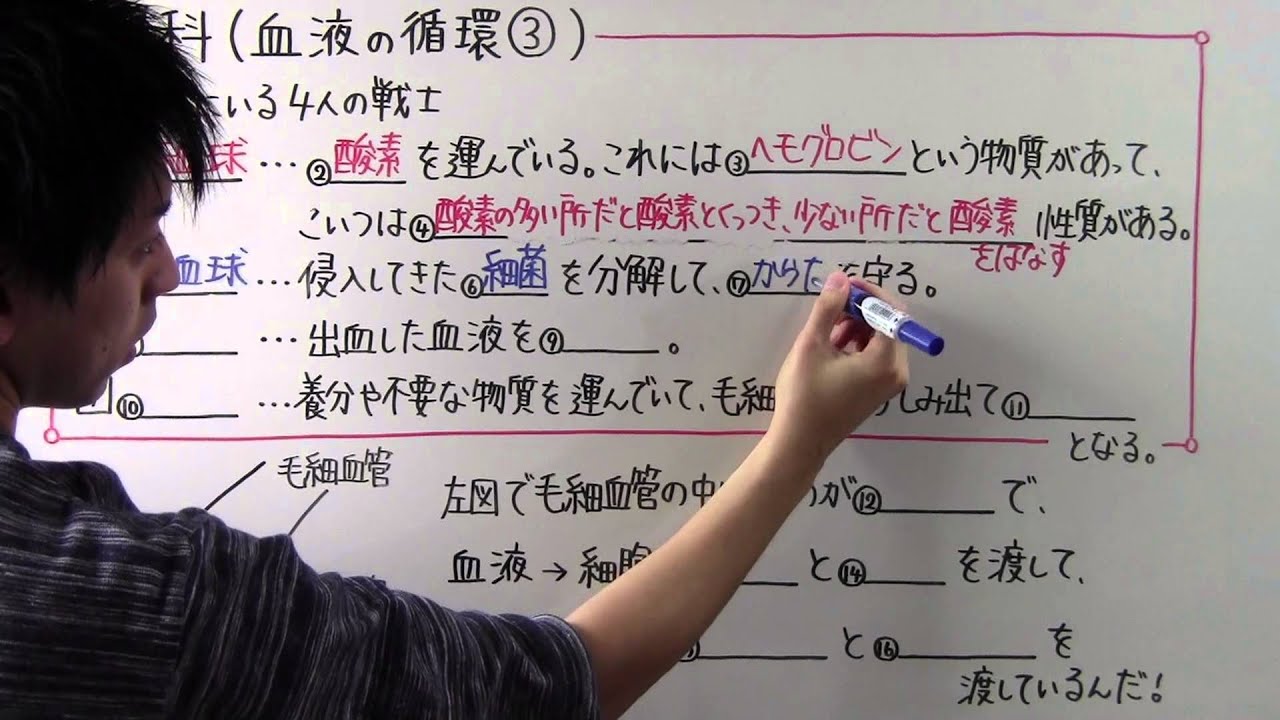 科(血液の循環③)
いる4人の戦士
血球…②酸素を運んでいる。これには③ヘモグロビンという物質があって、
こいつは④酸素の多い所だと酸素とくっつき、少ない所だと酸素をはなす性質がある。
血球…侵入してきた⑥細菌を分解して、⑰からだを守る。
…出血した血液を⑨______。
⑩______…養分や不要な物質を運んでいて、毛細 しみ出て⑪______となる。
毛細血管
左図で毛細血管の中 が⑫______で、
血液→細胞 ______と⑭______を渡して、
______と⑯______を
渡しているんだ!